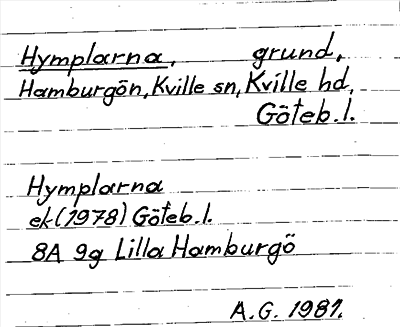 Hymplarna, grund,
Hamburgön, Kville sn, Kville hd,
Göteb. l.
Hymplarna
ek (1978) Göteb. l.
8A 9g Lilla Hamburgö
A.G. 1981.